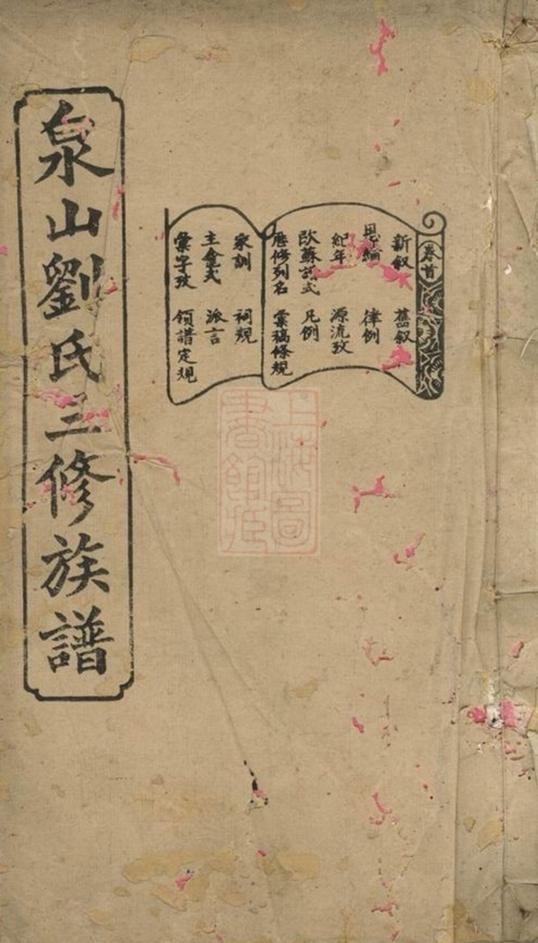 泉山劉氏三修族譜
卷首
新叙 舊叙
恩綸 律例
紀年 源流攷
歐蘇譜式 凡例
歷修列名 彙稿條規
家訓 祠規
主會式 派言
彙字攷 領譜定規
上海圖書館藏